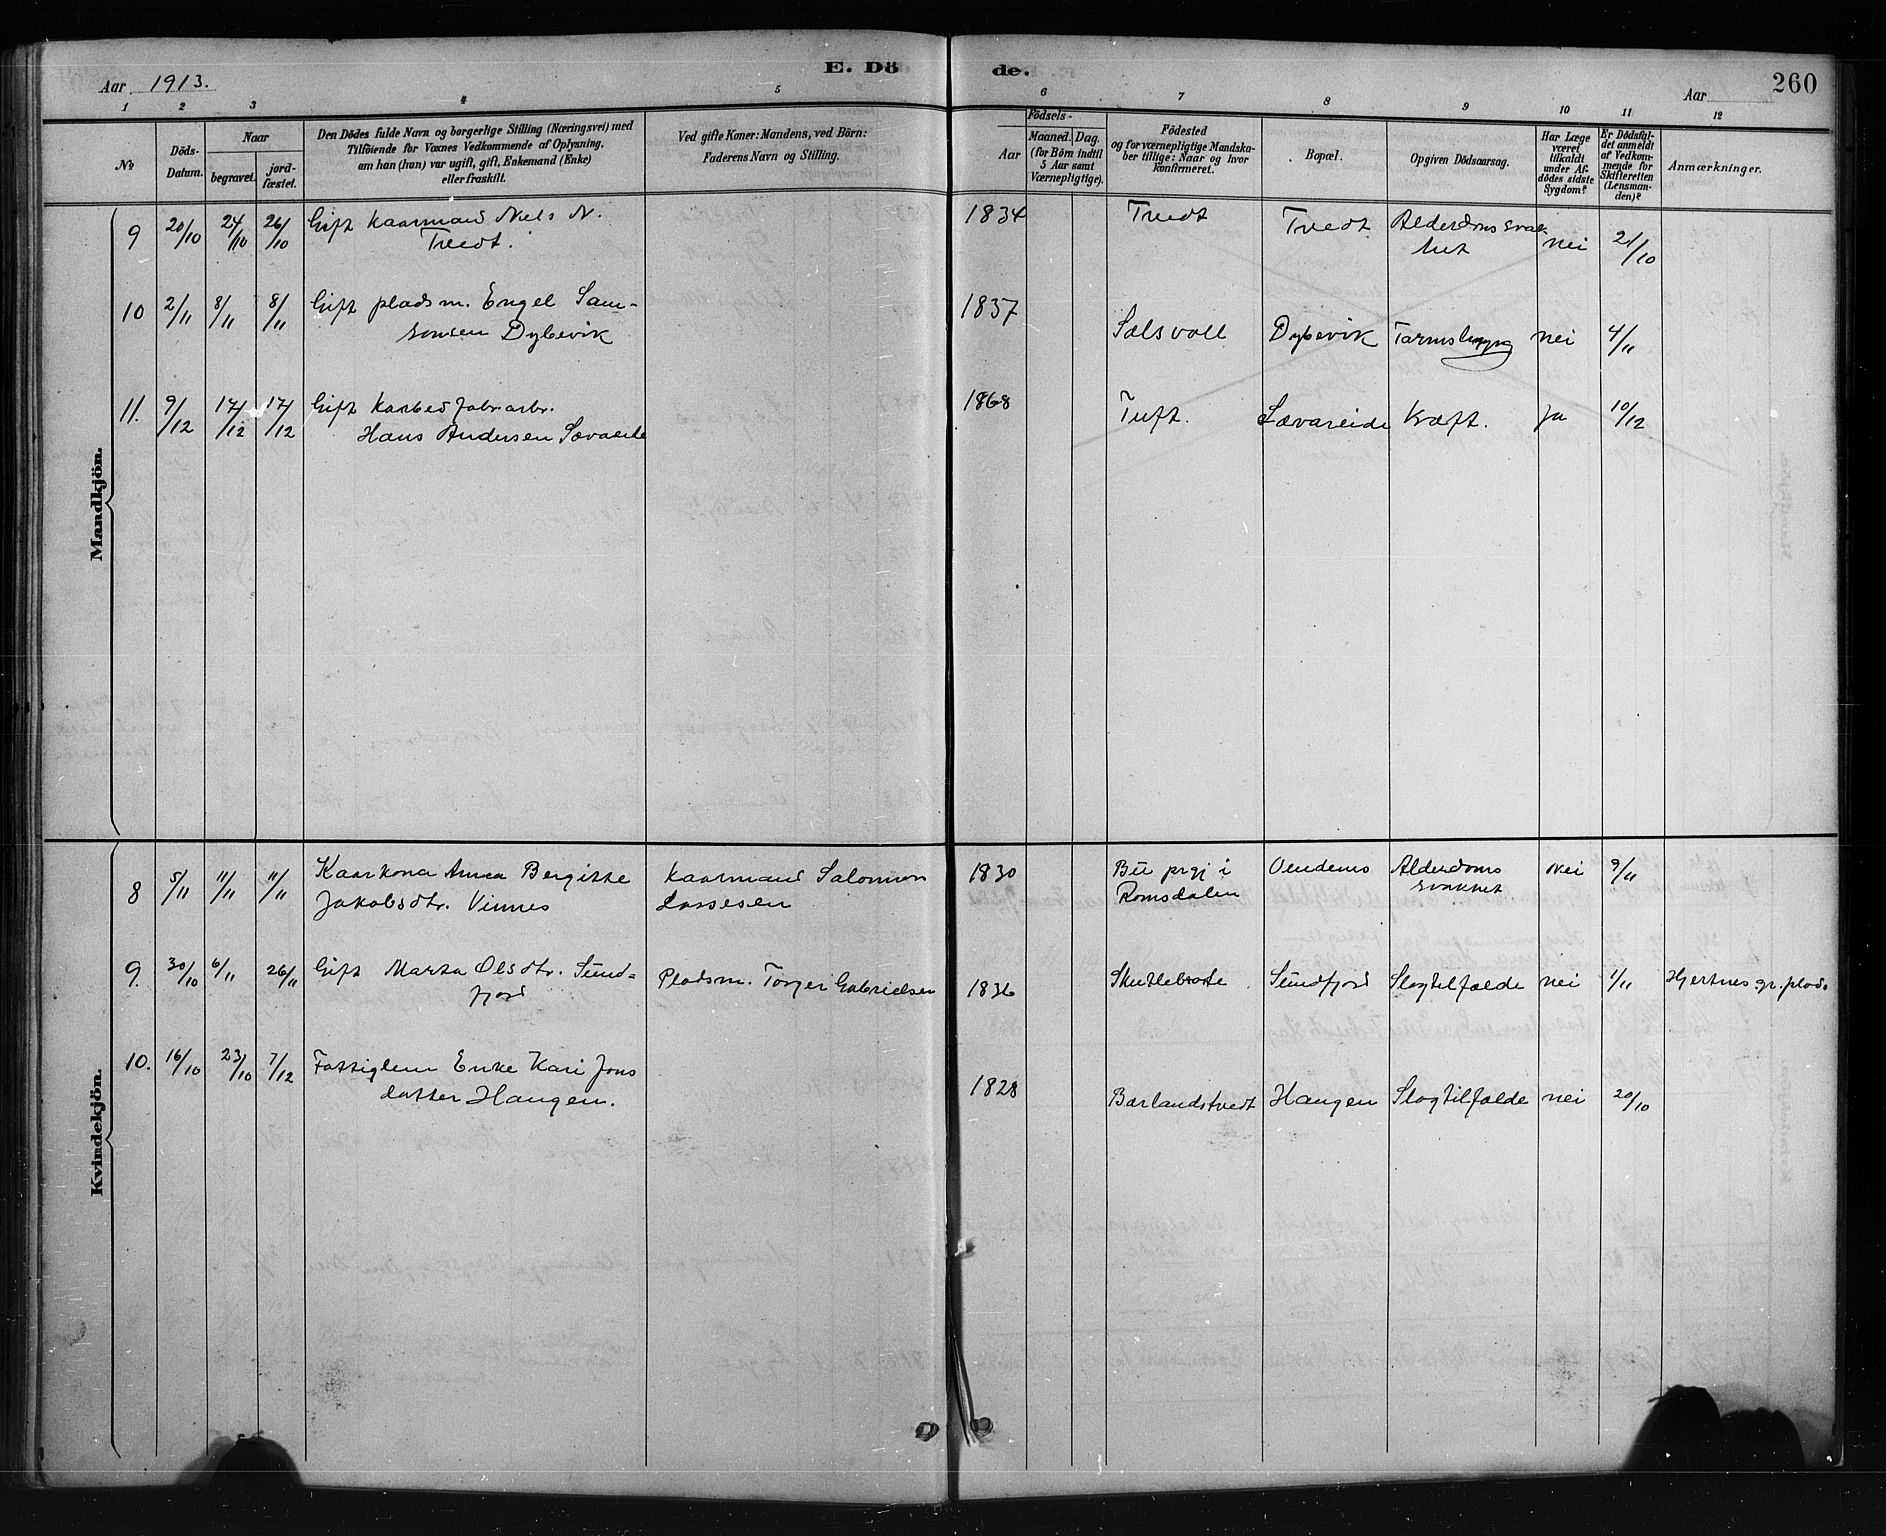 E. Döde.
260
Aar 1913.
Aar
1 2 3 4 5 6 7 8 9 10 11 12
No
Döds-Datum.
Naar
begravet.
jord-fæstet.
Den Dödes fulde Navn og borgerlige Stilling (Næringsvei) med
Tilföiende for Voxnes Vedkommende af Oplysning,
om han (hun) var ugift, gift, Enkemand (Enke)
eller fraskilt.
Ved gifte Koner: Mandens, ved Börn:
Faderens Navn og Stilling.
Födsels-
Aar
Maaned. Dag.
(for Börn indtil
5 Aar samt
Værnepligtige).
Födested
og for værnepligtige Mandska-
ber tillige: Naar og hvor
konfirmeret.
Bopæl.
Opgiven Dödsaarsag.
Har Læge
været
tilkaldt
under Af-
dödes sidste
Sygdom?
Er Dödsfal-
det anmeldt
af Vedkom-
mende for
Skifteretten
(Lensman-
den)?
Anmærkninger.
Mandkjön.
9 20/10 24/10 26/10 Gift Kaarmand Niels N. 1834 Tvedt Tvedt Alderdomssvak- nei 21/10
Tvedt. het
10 2/11 8/11 8/11 Gift pladsm. Engel Sam- 1837
sonsen Dybevik Salsvoll Dybevik nei 4/11
11. 9/12 17/12 17/12 Gift fabr.arb. 1868 Tuft. Sævareide Kræft. ja 10/12
Hans Andersen
Kvindekjön.
8 5/11 11/11 11/11 Kaarkona Anna Bergitte Kaarmand Salomon 1830 prgj i Alderdoms nei 9/11
Jakobsdtr. Vinnes Lassesen Romsdalen
9. 30/10 6/11 26/11 Gift Marta Olsdtr. Sund- Pladsm. Torger Gabrielsen 1836 Sundfjord Slagtilfælde nei 1/11 Hjertnes gr. plads
fjord
10. 16/10 23/10 7/12 Fattiglem Enke Kari Jons 1828 Barlandstvedt Haugen Slagtilfælde nei 20/10
datter Haugen.